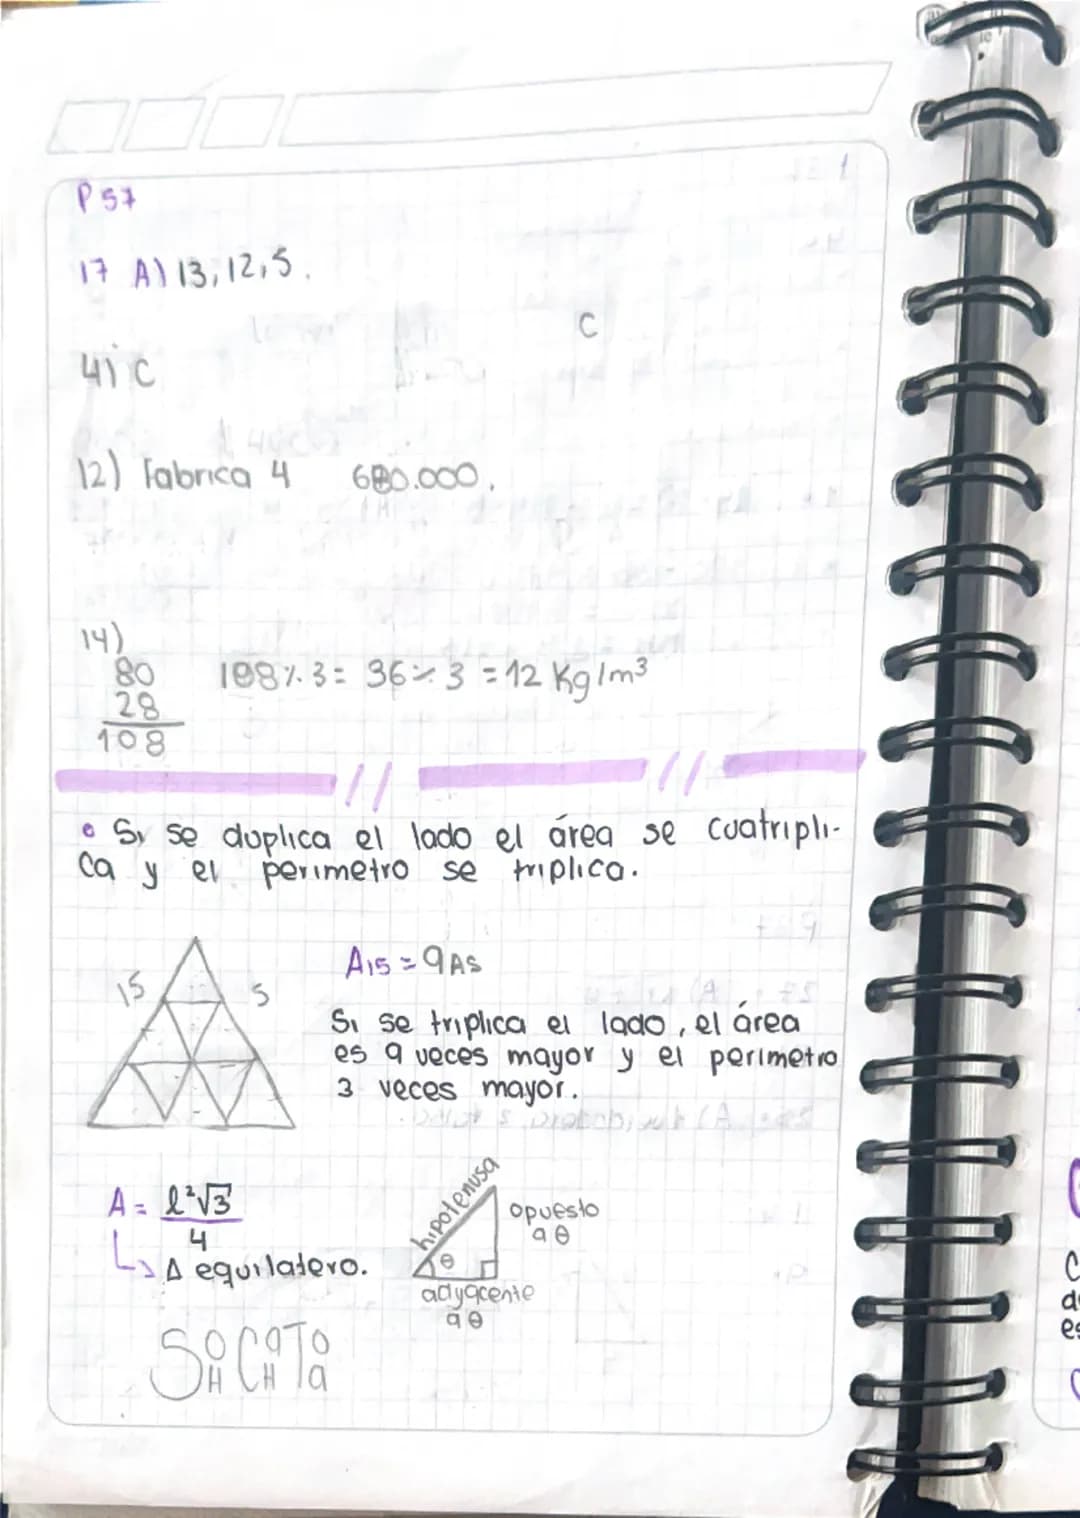 P 57
17 A) 13, 12, 5.
C
4) C
12) Fabrica 4 680.000.
14)
80
28
108
108 ÷ 3 = 36 ÷ 3 = 12 Kg/m³
• Si se duplica el lado el área se cuatripli-
ca y el perimetro se triplica.
15
5
A15 = 9A5
Si se triplica el lado, el área
es 9 veces mayor y el perimetro
3 veces mayor.
A = l²√3
4
↳ Δ equilatero.
hipotenusa
opuesto
a θ
θ
adyacente
a θ
S O H C a H T O a